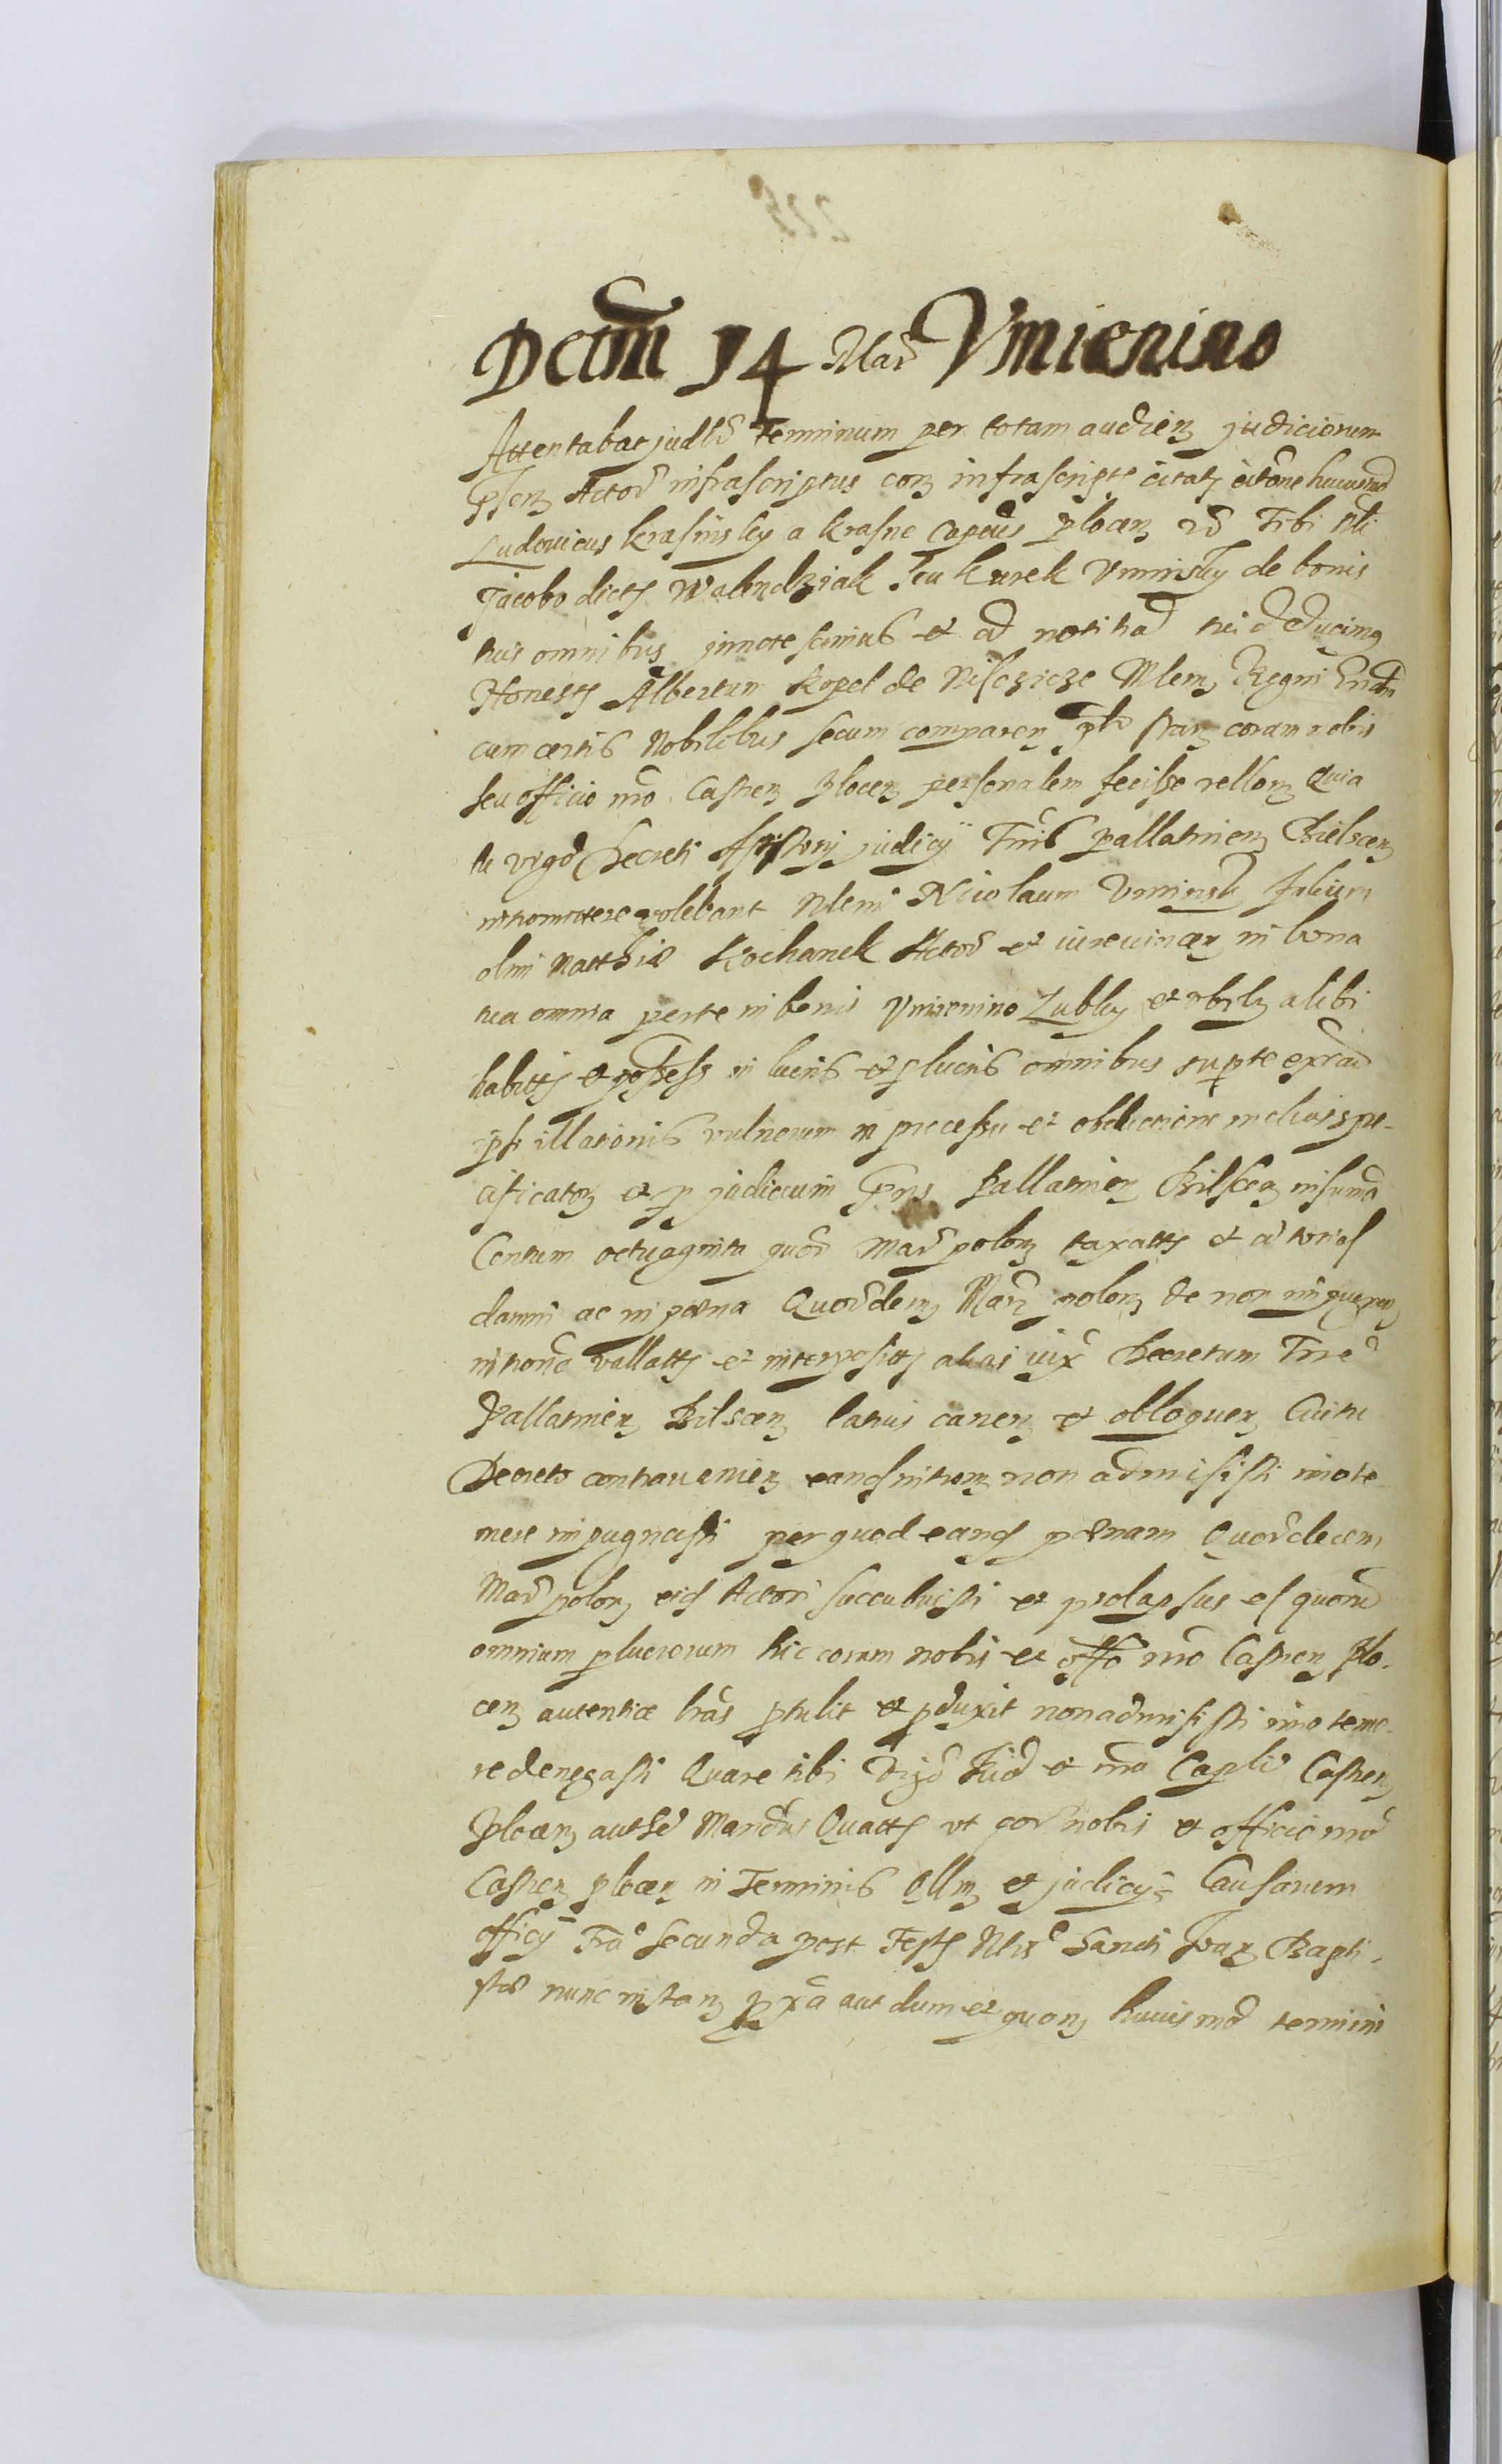 Dctm 14 Mar Vmienino
Attentabat judlr Terminum per totam audien judiciorum
pñsen Actor infrascriptus con infrascripte citat citõne huiusmd
Ludovicus Krasinsky a Krasne Capneus plocen Tibi Nli
Jacobo dicts Walendziak seu Kurek Vminsky de bonis
tuis omnibus innotescimus et ad notitiã tui deducim
Honests Albertum Kopel de Nisczicze Mlem Regni
cum certis Nobilibus secum comparen stan coram nobis
seu officio nrõ Castren plocen personalem fecisse rellõn Quia
tu vigo Decreti judicy Trñis pallatinien Bielscen
intromittere volebant Nlem Nicolaum Vminsk filium
olim Matthiæ Kochanek Actor et iurevincen in bona
tua omnia perte in bonis Vmienino Lubky et vbilz alibi
habits et possess in lucris et plucris omnibus supte
ipsi illationis vulnerum in processu et obductione melius spe-
cificaton et p judicium pallatinien Bilscen in summa
Centum octuaginta quor Mar polon taxatts et
damni ac in pœna Quordecim Mar polon de non impugnan
intromõe vallatts et interposits alias iux Decretum Trre
Pallatinien Bilscen latius canen et obloquen Cui tu
Decreto contravenien eand intron non admisisti imo te
mere impugnasti per quod eand pœnam Quordecem
Mar polon eid Actori succubuisti et prolapsus es quorum
omnium plucrorum hic coram nobis et offo nrõ Castren plo-
cen autentice lrãs ptulit et pduxit non admisisti imo teme-
re denegasti Quare tibi et nra Capli Castren
plocen authe Mandus Quatts vt cor nobis et officio nrõ
Castren plocen in Terminis Qllm et judicys Causarum
officy Fra secunda post Fests Nlis Sancti Joan Bapti-
stæ nunc instan pxa aut dum et quan huiusmd termini